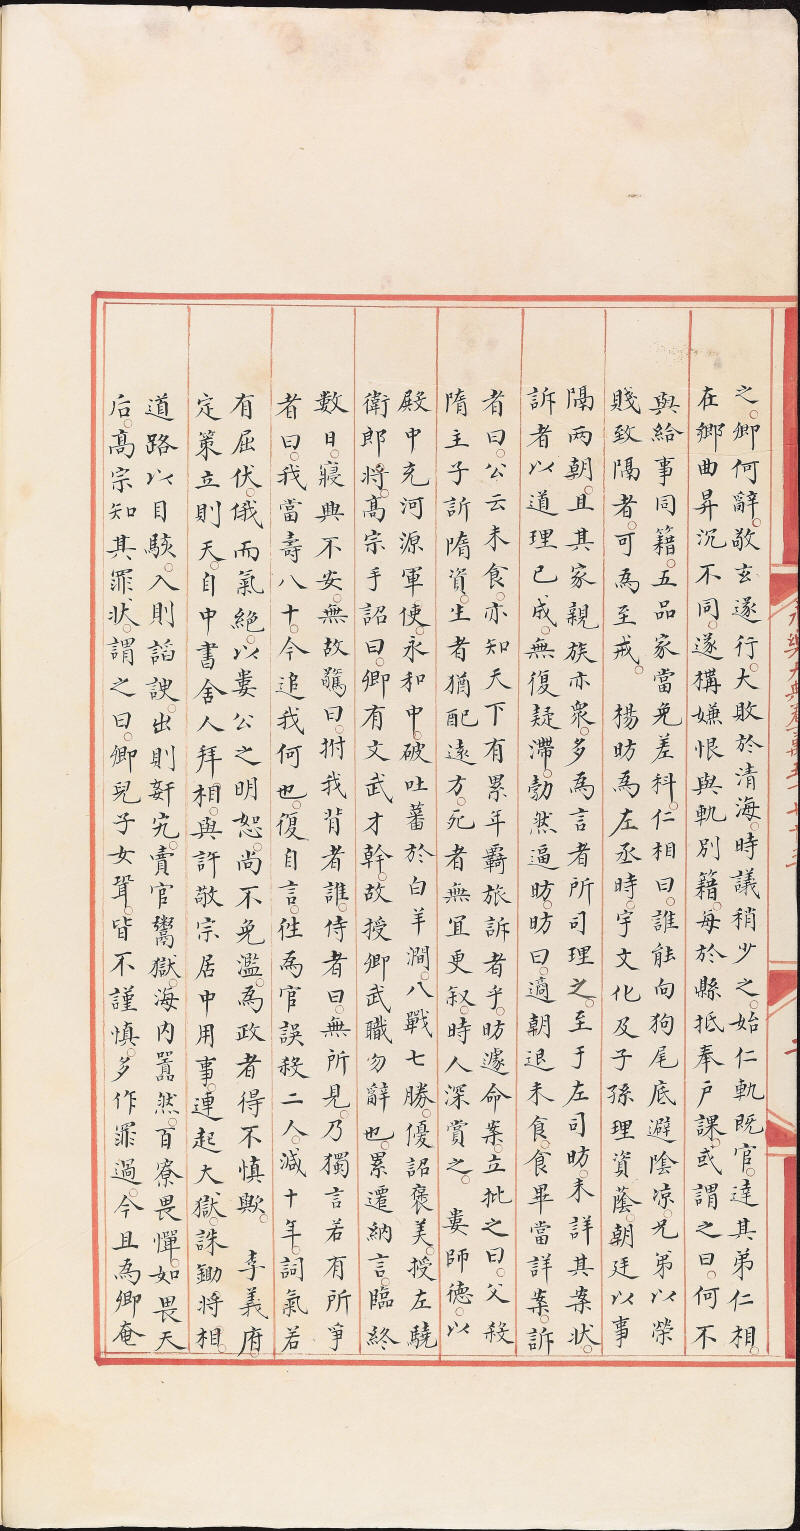 之。卿何辭。敬玄遂行。大敗於清海。時議稍少之。始仁軌既官。達其弟仁相。
在鄉曲昇沉不同。遂搆嫌恨與軌別籍。每於縣抵奉戶課。或謂之曰。何不
與給事同籍。五品家當免差科。仁相曰。誰能向狗尾底避陰凉。兄弟以榮
賤致隔者。可為至戒。　楊昉為左丞時。宇文化及子孫理資蔭。朝廷以事
隔兩朝。且其家親族亦衆。多為言者所司理之。至于左司昉。未詳其案状。
訴者以道理已成。無復疑滯。勃然逼昉。昉曰。適朝退未食。食畢當詳案。訴
者曰。公云未食。亦知天下有累年羇旅訴者乎。昉遽命案。立批之曰。父殺
隋主子訢隋資。生者猶配遠方。死者無宜更叙。時人深賞之。　婁師德。以
殿中充河源軍使。永和中。破吐蕃於白羊澗。八戰七勝。優詔褒美。授左驍
衛郎將。髙宗手詔曰。卿有文武才幹。故授卿武職勿辭也。累遷納言。臨終
數日。寢興不安。無故驚曰。拊我背者誰。侍者曰。無所見。乃獨言若有所爭
者曰。我當壽八十。今追我何也。復自言。徃為官誤殺二人。減十年。詞氣若
有屈伏。俄而氣絶。以婁公之明恕。尚不免濫。為政者得不慎歟。　李義府。
定策立則天。自中書舍人拜相。與許敬宗居中用事。連起大獄。誅鋤將相。
道路以目駭。入則謟諛。出則姧宄。賣官鬻獄。海内嚣然。百寮畏憚。如畏天
后。髙宗知其罪状。謂之曰。卿兒子女壻。皆不謹慎。多作罪過。今且為卿奄